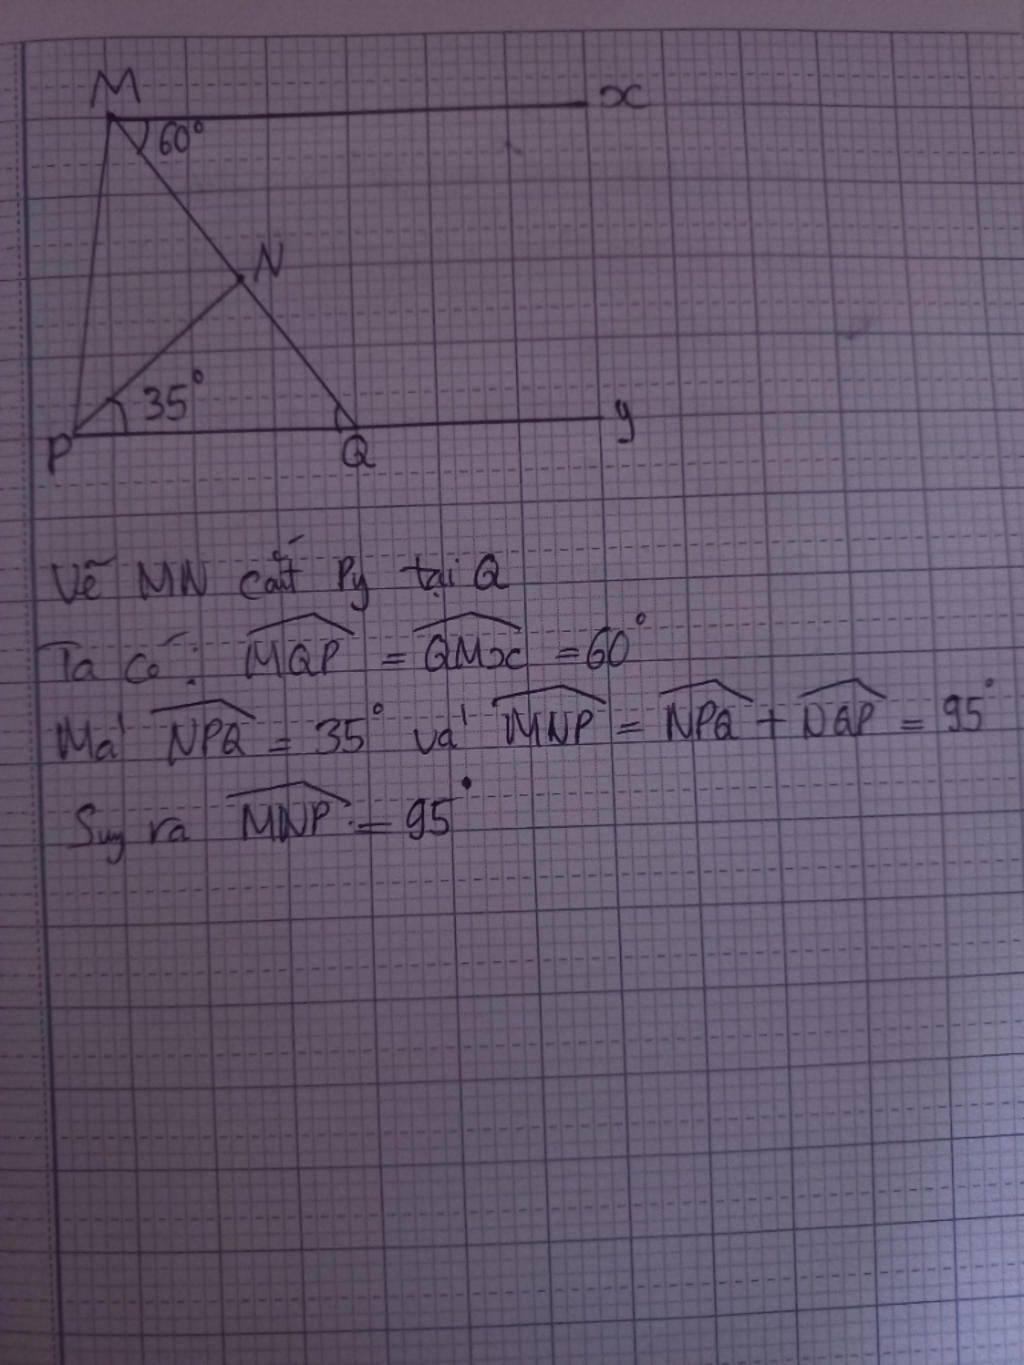 M
x
60°
N
35°
P
Q
y
Vẽ MN cắt Py tại Q
Ta có: MQP = QMx = 60°
Mà NPQ = 35° và MNP = NPQ + NQP = 95°
Suy ra MNP = 95°